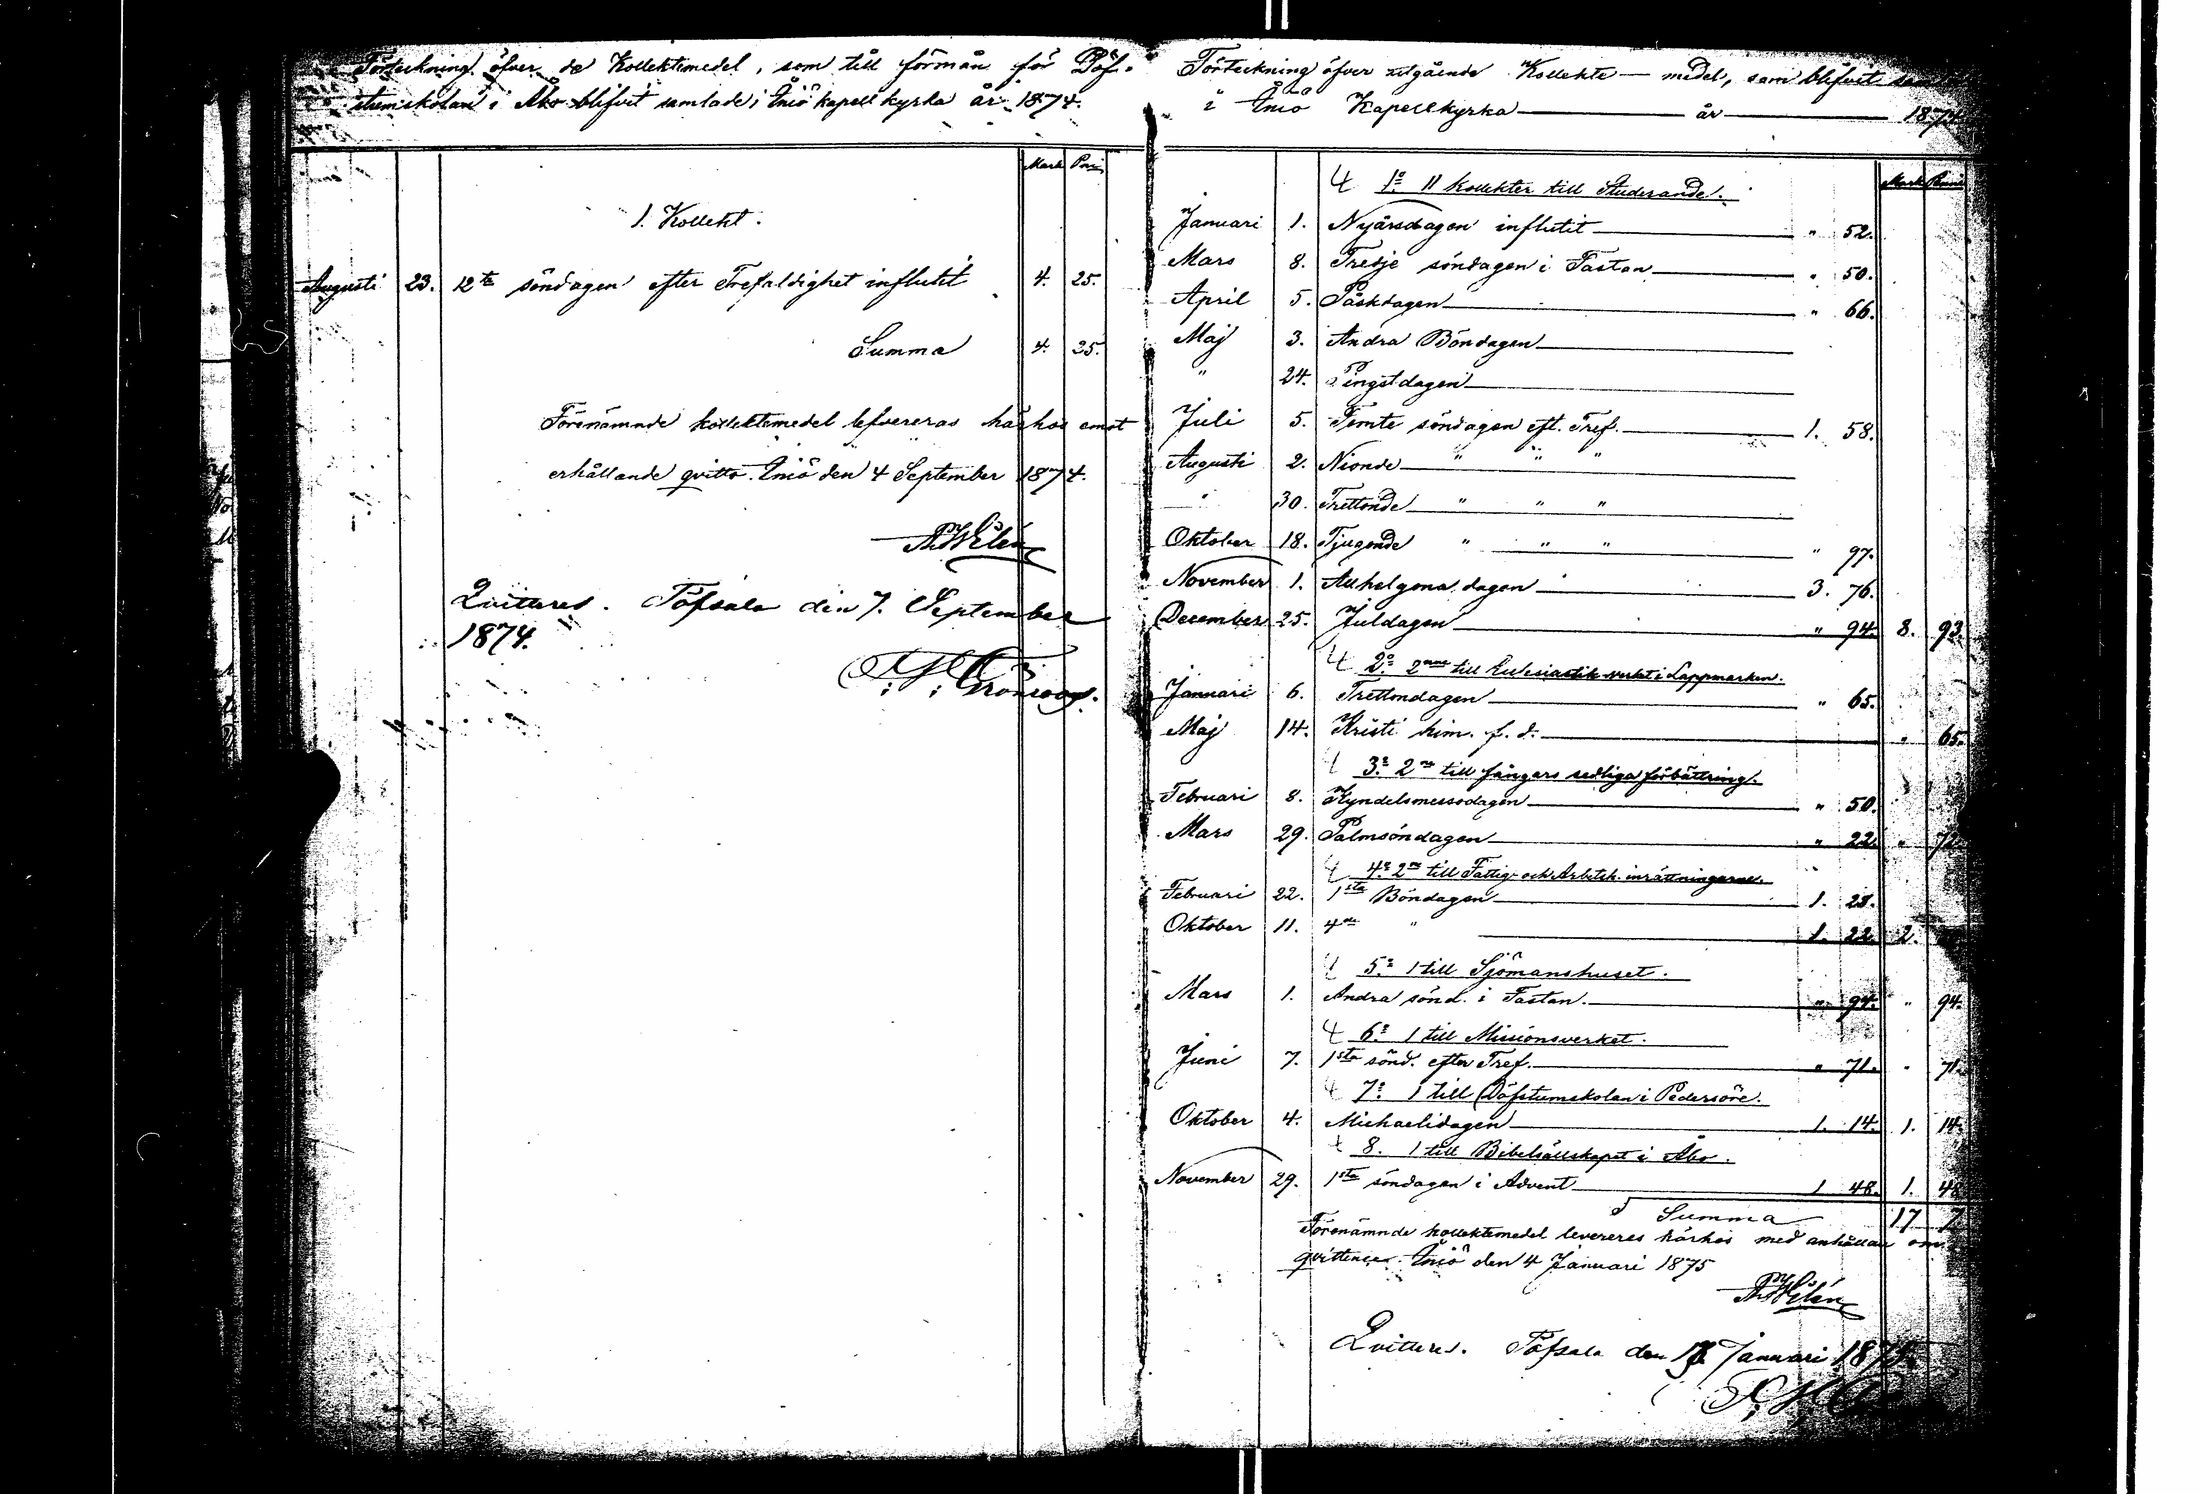 Förteckning öfver de Kollektmedel, som till förmån för Döf-
stumskolan i Åbo blifvit samlade i Iniö kapell kyrka år 1874.
Mark Pni
1. Kollekt.
Augusti 23. 12te söndagen efter Trefaldighet influtit 4. 25.
Summa 4. 25.
Förenämnde kollektemedel lefvereras härhos emot
erhållande qvitto. Iniö den 4 September 1874.
Qvitteras. Töfsala den 7. September
1874.
Förteckning öfver utgående Kollekte-medel, som blifvit
i Iniö Kapellkyrka år 1874
Mark Penni
1o 11 kollekter till Studerande.
Januari 1. Nyårsdagen influtit " 52.
Mars 8. Tredje söndagen i Fastan " 50.
April 5. Påskdagen " 66.
Maj 3. Andra Böndagen
" 24. Pingstdagen
Juli 5. Femte söndagen eft. Tref. 1. 58.
Augusti 2. Nionde " " "
" 30. Trettonde " " "
Oktober 18. Tjugonde " " " " 97.
November 1. Allhelgona dagen 3. 76.
December 25. Juldagen " 94. 8. 93.
2o 2ne till Eclesiastik verket i Lappmarken.
Januari 6. Trettondagen " 65.
Maj 14. Kristi him. f. d. " 65.
3o 2ne till fångars sedliga förbättring.
Februari 8. Kyndelsmessodagen " 50.
Mars 29. Palmsöndagen " 22. " 72.
4o 2ne till Fattig- och Arbetsh. inrättningarne.
Februari 22. 1sta Böndagen 1. 28.
Oktober 11. 4de " 1. 22. 2.
5o 1 till Sjömanshuset.
Mars 1. Andra sönd. i Fastan. " 94. " 94.
6o 1 till Missionsverket.
Juni 7. 1sta sönd. efter Tref. " 71. " 71.
7o 1 till Döfstumskolan i Pedersöre.
Oktober 4. Michaelidagen 1. 14. 1. 14.
8. 1 till Bibelsällskapet i Åbo.
November 29. 1sta söndagen i Advent 1 48. 1. 48
Summa 17 7
Förenämnde kollektemedel levereres härhos med anhållan om
qvittence. Iniö den 4 Januari 1875
Qvitteras. Töfsala den Januari 1875